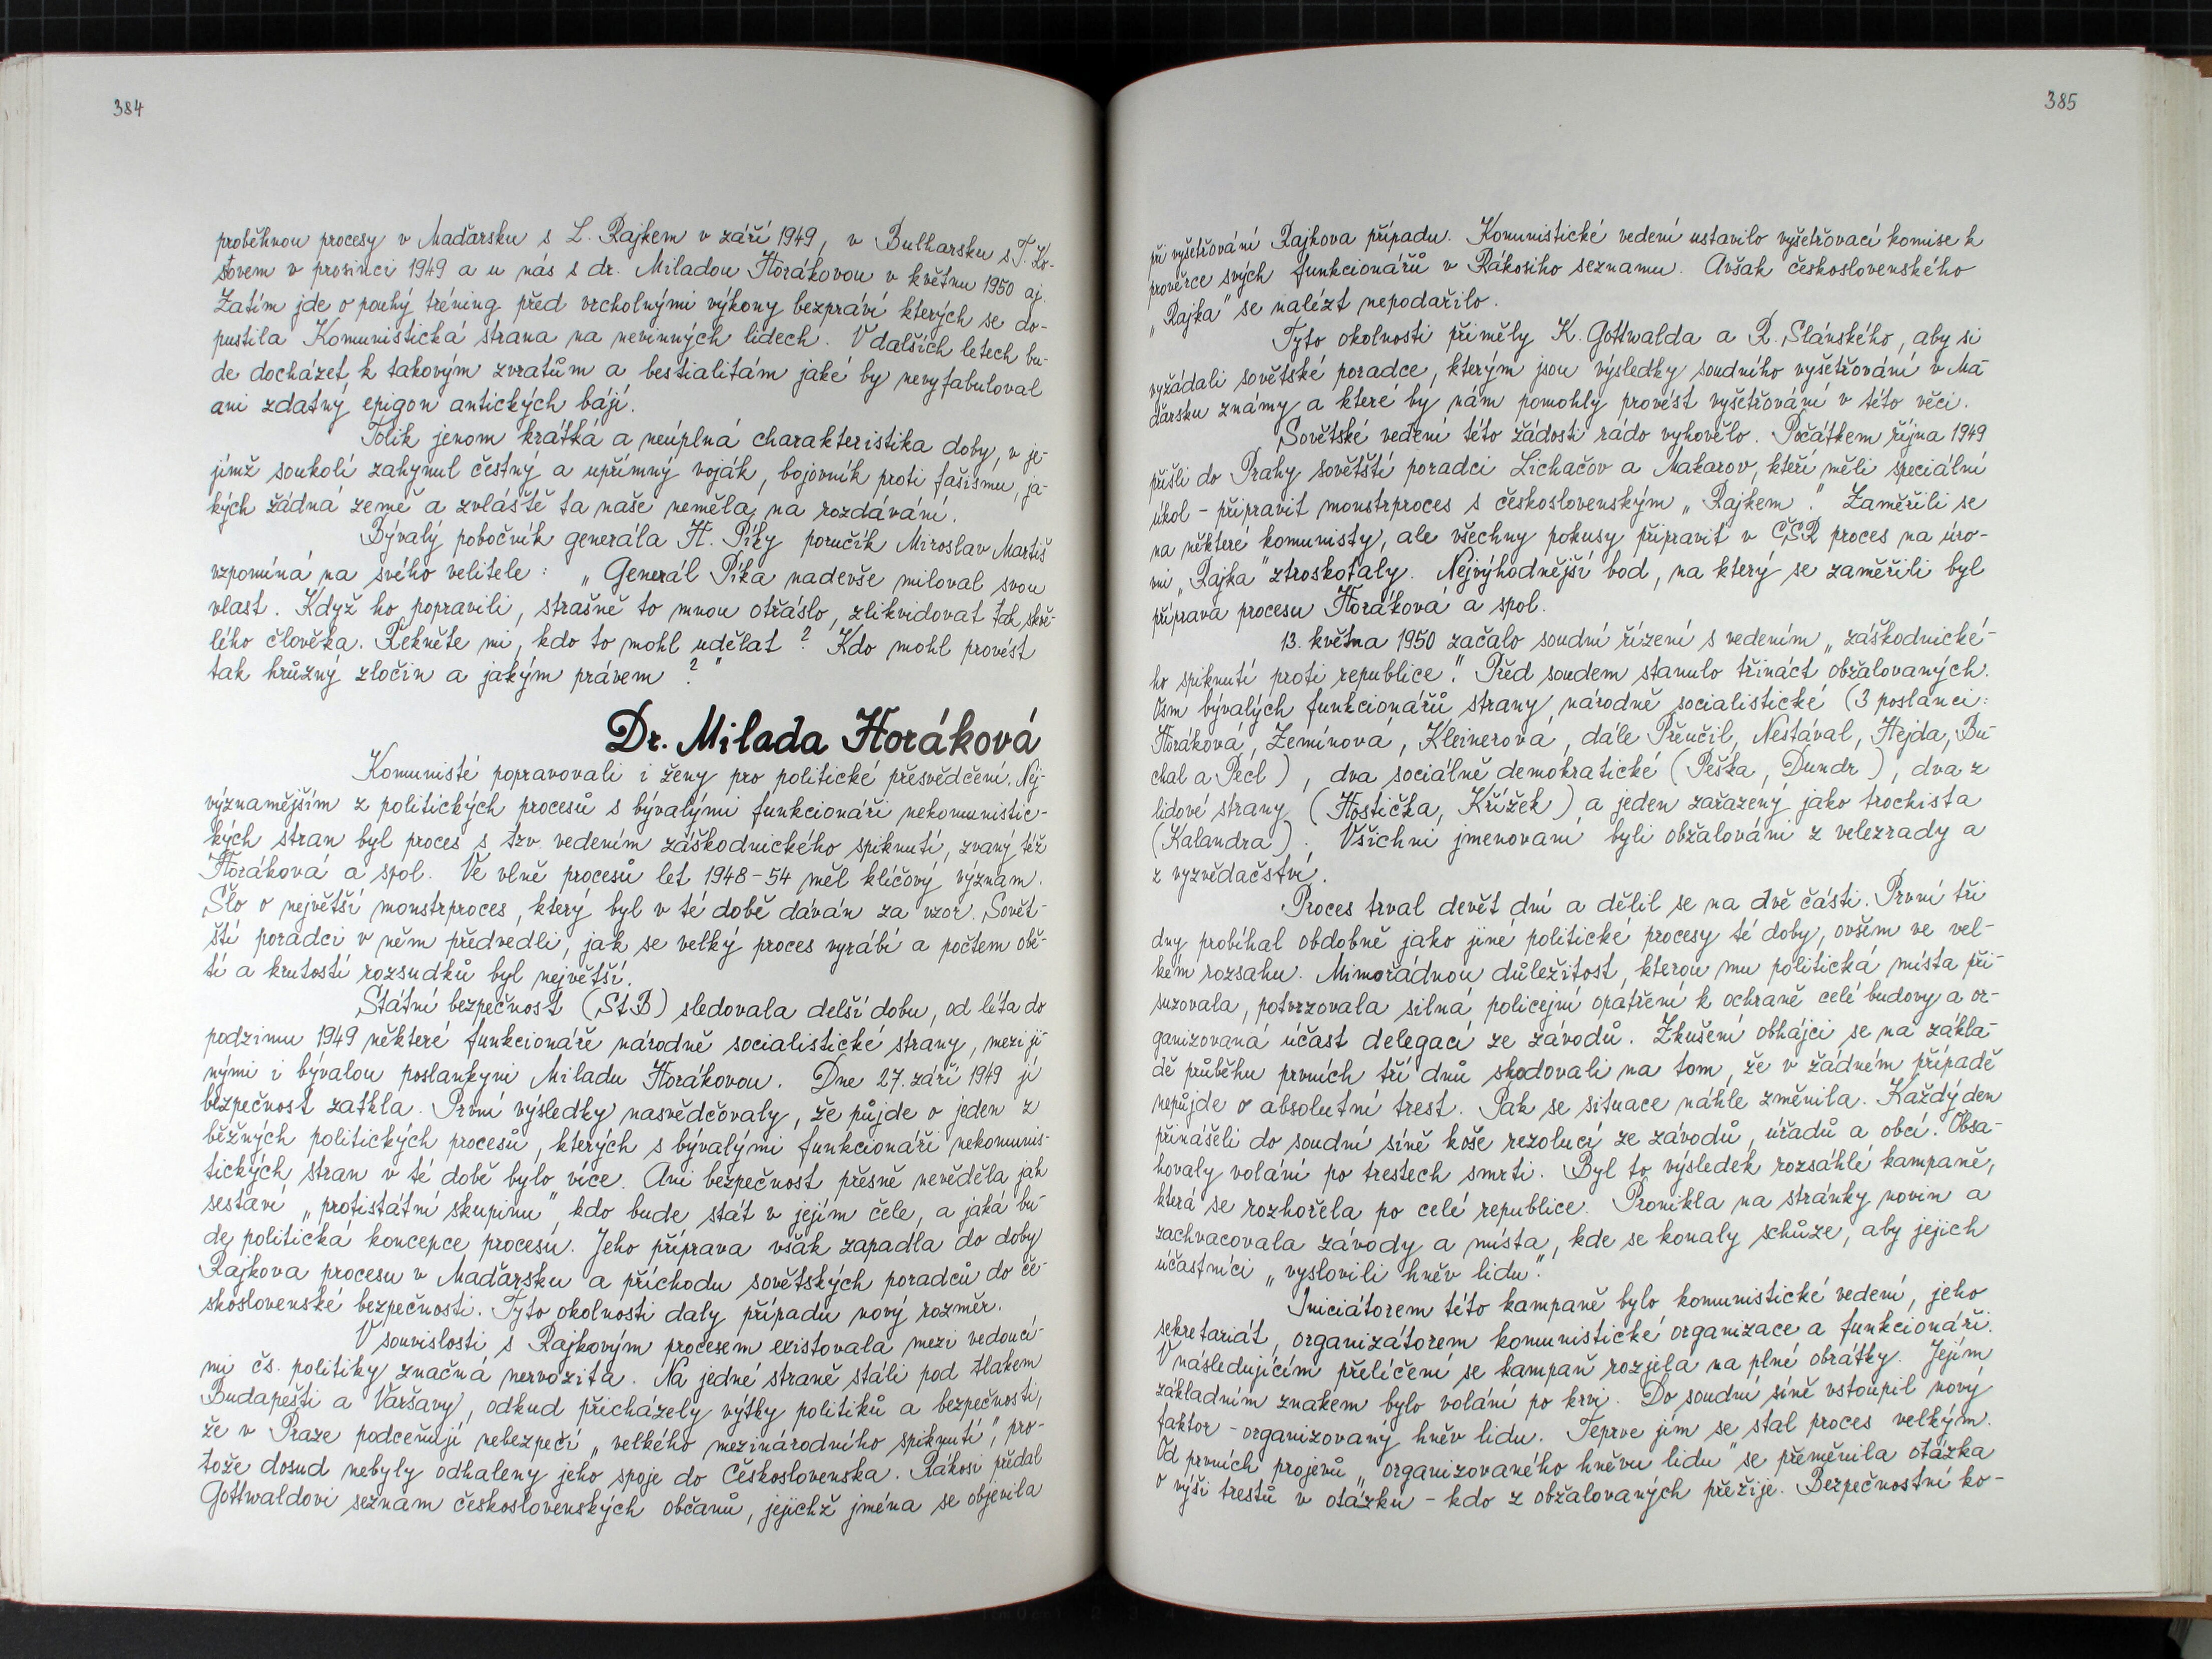 384
proběhnou procesy v Maďarsku s L. Rajkem v září 1949, v Bulharsku s T. Ko-
stovem v prosinci 1949 a u nás s dr. Miladou Horákovou v květnu 1950 aj.
Zatím jde o pouhý tréning před vrcholnými výkony bezpráví kterých se do-
pustila Komunistická strana na nevinných lidech. V dalších letech bu-
de docházet k takovým zvratům a bestialitám jaké by nevyfabuloval
ani zdatný epigon antických bájí.
Tolik jenom krátká a neúplná charakteristika doby, v je-
jímž soukolí zahynul čestný a upřímný voják, bojovník proti fašismu, ja-
kých žádná země a zvláště ta naše neměla na rozdávání.
Bývalý pobočník generála H. Píky poručík Miroslav Martiš
vzpomíná na svého velitele: „Generál Píka nadevše miloval svou
vlast. Když ho popravili, strašně to mnou otřáslo, zlikvidovat tak skvě-
lého člověka. Řekněte mi, kdo to mohl udělat? Kdo mohl provést
tak hrůzný zločin a jakým právem?"
Dr. Milada Horáková
Komunisté popravovali i ženy pro politické přesvědčení. Nej-
významějším z politických procesů s bývalými funkcionáři nekomunistic-
kých stran byl proces s tzv. vedením záškodnického spiknutí, zvaný též
Horáková a spol. Ve vlně procesů let 1948-54 měl klíčový význam.
Šlo o největší monstrproces, který byl v té době dáván za vzor. Sovět-
ští poradci v něm předvedli, jak se velký proces vyrábí a počtem obě-
tí a krutostí rozsudků byl největší.
Státní bezpečnost (StB) sledovala delší dobu, od léta do
podzimu 1949 některé funkcionáře národně socialistické strany, mezi ji-
nými i bývalou poslankyni Miladu Horákovou. Dne 27. září 1949 ji
bezpečnost zatkla. První výsledky nasvědčovaly, že půjde o jeden z
běžných politických procesů, kterých s bývalými funkcionáři nekomunis-
tických stran v té době bylo více. Ani bezpečnost přesně nevěděla jak
sestaví „protistátní skupinu", kdo bude stát v jejím čele, a jaká bu-
de politická koncepce procesu. Jeho příprava však zapadla do doby
Rajkova procesu v Maďarsku a příchodu sovětských poradců do če-
skoslovenské bezpečnosti. Tyto okolnosti daly případu nový rozměr.
V souvislosti s Rajkovým procesem existovala mezi vedoucí-
mi čs. politiky značná nervozita. Na jedné straně stáli pod tlakem
Budapešti a Varšavy, odkud přicházely výtky politiků a bezpečnosti,
že v Praze podceňují nebezpečí „velkého mezinárodního spiknutí", pro-
tože dosud nebyly odhaleny jeho spoje do Československa. Rákosi předal
Gottwaldovi seznam československých občanů, jejichž jména se objevila
385
při vyšetřování Rajkova případu. Komunistické vedení ustavilo vyšetřovací komise k
prověrce svých funkcionářů v Rákosiho seznamu. Avšak československého
„Rajka" se nalézt nepodařilo.
Tyto okolnosti přiměly K. Gottwalda a R. Slánského, aby si
vyžádali sovětské poradce, kterým jsou výsledky soudního vyšetřování v Ma-
ďarsku známy a které by nám pomohly provést vyšetřování v této věci.
Sovětské vedení této žádosti rádo vyhovělo. Počátkem října 1949
přišli do Prahy sovětští poradci Lichačov a Makarov, kteří měli speciální
úkol - připravit monstrproces s československým „Rajkem". Zaměřili se
na některé komunisty, ale všechny pokusy připravit v ČSR proces na úro-
vni „Rajka" ztroskotaly. Nejvýhodnější bod, na který se zaměřili byl
příprava procesu Horáková a spol.
13. května 1950 začalo soudní řízení s vedením „záškodnické-
ho spiknutí proti republice". Před soudem stanulo třináct obžalovaných.
Osm bývalých funkcionářů strany národně socialistické (3 poslanci:
Horáková, Zemínová, Kleinerová, dále Přeučil, Nestával, Hejda, Bu-
chal a Pecl), dva sociálně demokratické (Peška, Dundr), dva z
lidové strany (Hostička, Křížek) a jeden zařazený jako trochista
(Kalandra). Všichni jmenovaní byli obžalováni z velezrady a
z vyzvědačství.
Proces trval devět dní a dělil se na dvě části. První tři
dny probíhal obdobně jako jiné politické procesy té doby, ovšem ve vel-
kém rozsahu. Mimořádnou důležitost, kterou mu politická místa při-
suzovala, potvrzovala silná policejní opatření k ochraně celé budovy a or-
ganizovaná účast delegací ze závodů. Zkušení obhájci se na zákla-
dě průběhu prvních tří dnů shodovali na tom, že v žádném případě
nepůjde o absolutní trest. Pak se situace náhle změnila. Každý den
přinášeli do soudní síně koše rezolucí ze závodů, úřadů a obcí. Obsa-
hovaly volání po trestech smrti. Byl to výsledek rozsáhlé kampaně,
která se rozhořela po celé republice. Pronikla na stránky novin a
zachvacovala závody a místa, kde se konaly schůze, aby jejich
účastníci „vyslovili hněv lidu".
Iniciátorem této kampaně bylo komunistické vedení, jeho
sekretariát, organizátorem komunistické organizace a funkcionáři.
V následujícím přelíčení se kampaň rozjela na plné obrátky. Jejím
základním znakem bylo volání po krvi. Do soudní síně vstoupil nový
faktor - organizovaný hněv lidu. Teprve jím se stal proces velkým.
Od prvních projevů „organizovaného hněvu lidu" se přeměnila otázka
o výši trestů v otázku - kdo z obžalovaných přežije. Bezpečnostní ko-